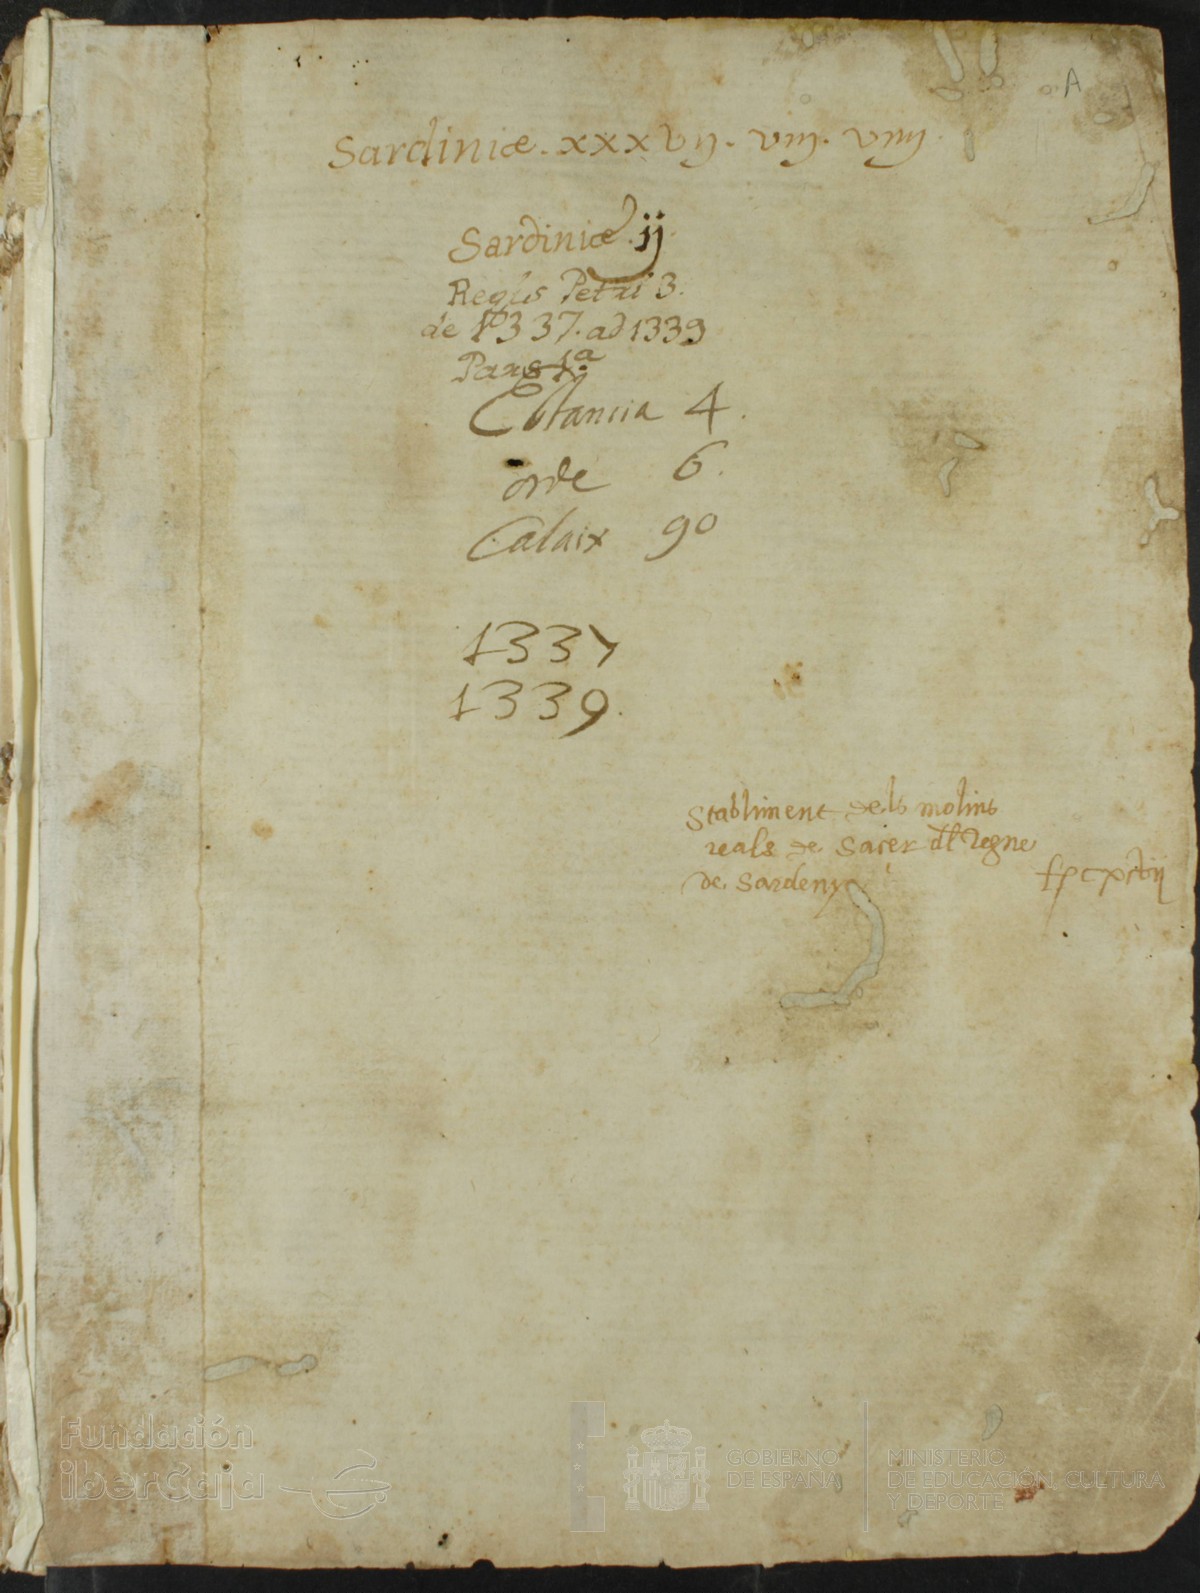 A
Sardiniæ. xxxvij. viij. viiij
Sardiniæ ij
Regis Petri 3.
de 1337. ad 1339
Pars 1.a
Estancia 4.
orde 6.
Calaix 90
1337
1339.
Stabliment dels molins
reals de Sacer del Regne
de Sardenya
Fundación
iberCaja
GOBIERNO
DE ESPAÑA
MINISTERIO
DE EDUCACIÓN, CULTURA
Y DEPORTE